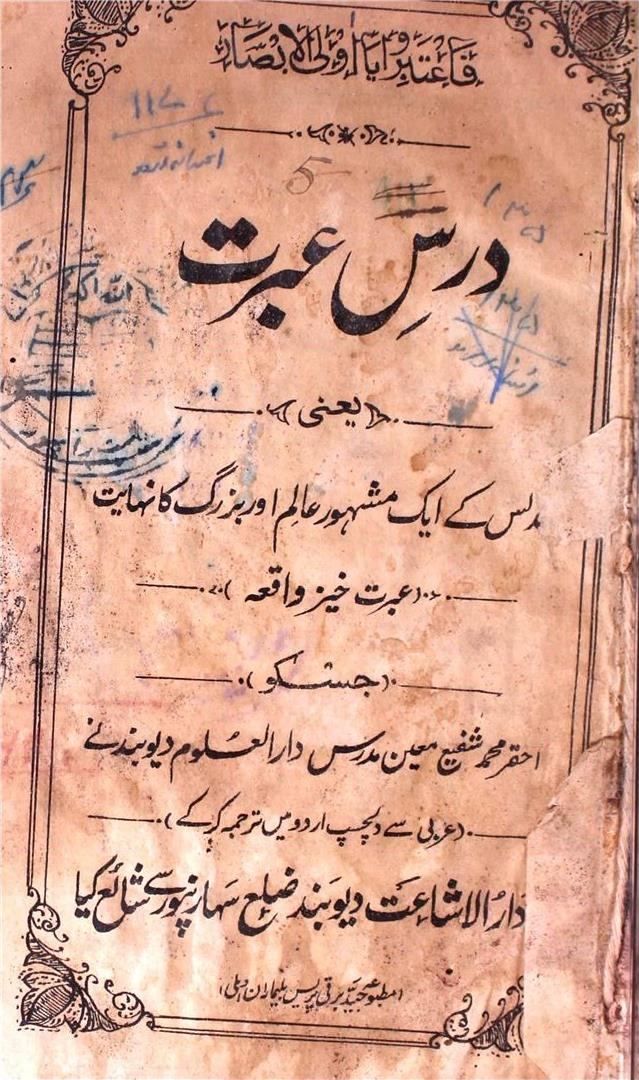 فاعتبروا یا اولی الابصار
۱۱۷۶
5
درسِ عبرت
یعنی
دلس کے ایک مشہور عالم اور بزرگ کا نہایت
(عبرت خیز واقعہ)
(جسکو)
احقر محمد شفیع معین مدرس دارالعلوم دیوبند نے
(عربی سے دلچسپ اردو میں ترجمہ کرکے)
دارالاشاعت دیوبند ضلع سہارنپور سے شائع کیا
(مطبوعہ جید برقی پریس بلیماران دہلی)